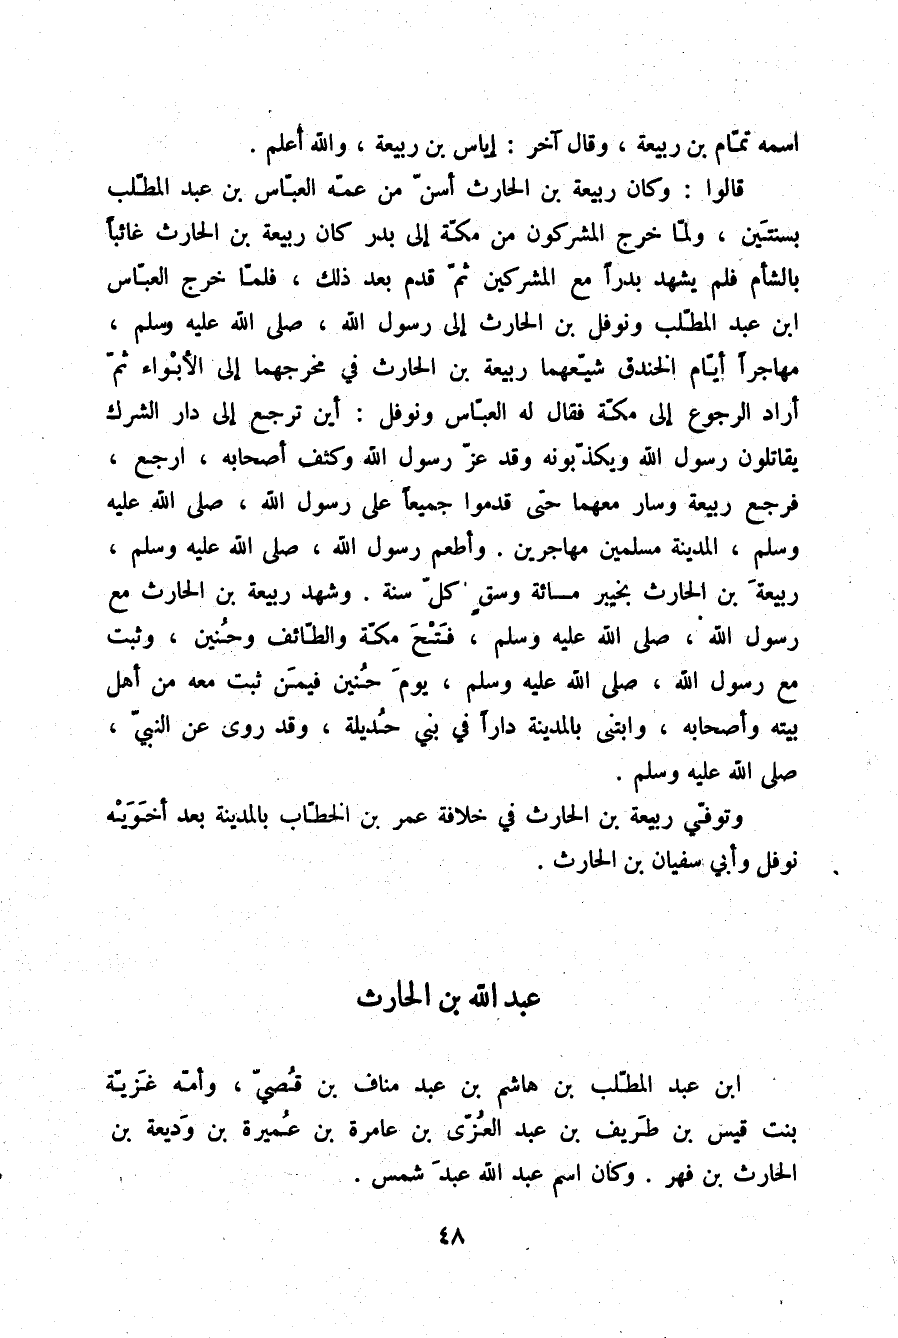 اسمه تمّام بن ربيعة ، وقال آخر : إياس بن ربيعة ، والله أعلم .
قالوا : وكان ربيعة بن الحارث أسنّ من عمّه العبّاس بن عبد المطّلب
بسنتَين ، ولمّا خرج المشركون من مكّة إلى بدر كان ربيعة بن الحارث غائباً
بالشأم فلم يشهد بدراً مع المشركين ثمّ قدم بعد ذلك ، فلمّا خرج العبّاس
ابن عبد المطّلب ونوفل بن الحارث إلى رسول الله ، صلى الله عليه وسلم ،
مهاجراً أيّام الخندق شيّعهما ربيعة بن الحارث في مخرجهما إلى الأبْواء ثمّ
أراد الرجوع إلى مكّة فقال له العبّاس ونوفل : أين ترجع إلى دار الشرك
يقاتلون رسول الله ويكذّبونه وقد عزّ رسول الله وكثف أصحابه ، ارجع ،
فرجع ربيعة وسار معهما حتّى قدموا جميعاً على رسول الله ، صلى الله عليه
وسلم ، المدينة مسلمين مهاجرين . وأطعم رسول الله ، صلى الله عليه وسلم ،
ربيعةَ بن الحارث بخيبر مائة وسقٍ كلّ سنة . وشهد ربيعة بن الحارث مع
رسول الله ، صلى الله عليه وسلم ، فَتْحَ مكّة والطّائف وحُنين ، وثبت
مع رسول الله ، صلى الله عليه وسلم ، يومَ حُنين فيمَن ثبت معه من أهل
بيته وأصحابه ، وابتنى بالمدينة داراً في بني حُديلة ، وقد روى عن النبيّ ،
صلى الله عليه وسلم .
وتوفّي ربيعة بن الحارث في خلافة عمر بن الخطّاب بالمدينة بعد أخَوَيْه
نوفل وأبي سفيان بن الحارث .
عبد الله بن الحارث
ابن عبد المطّلب بن هاشم بن عبد مناف بن قُصيّ ، وأمّه غَزيّة
بنت قيس بن طَريف بن عبد العُزّى بن عامرة بن عُميرة بن وَديعة بن
الحارث بن فهر . وكان اسم عبد الله عبدَ شمس .
٤٨